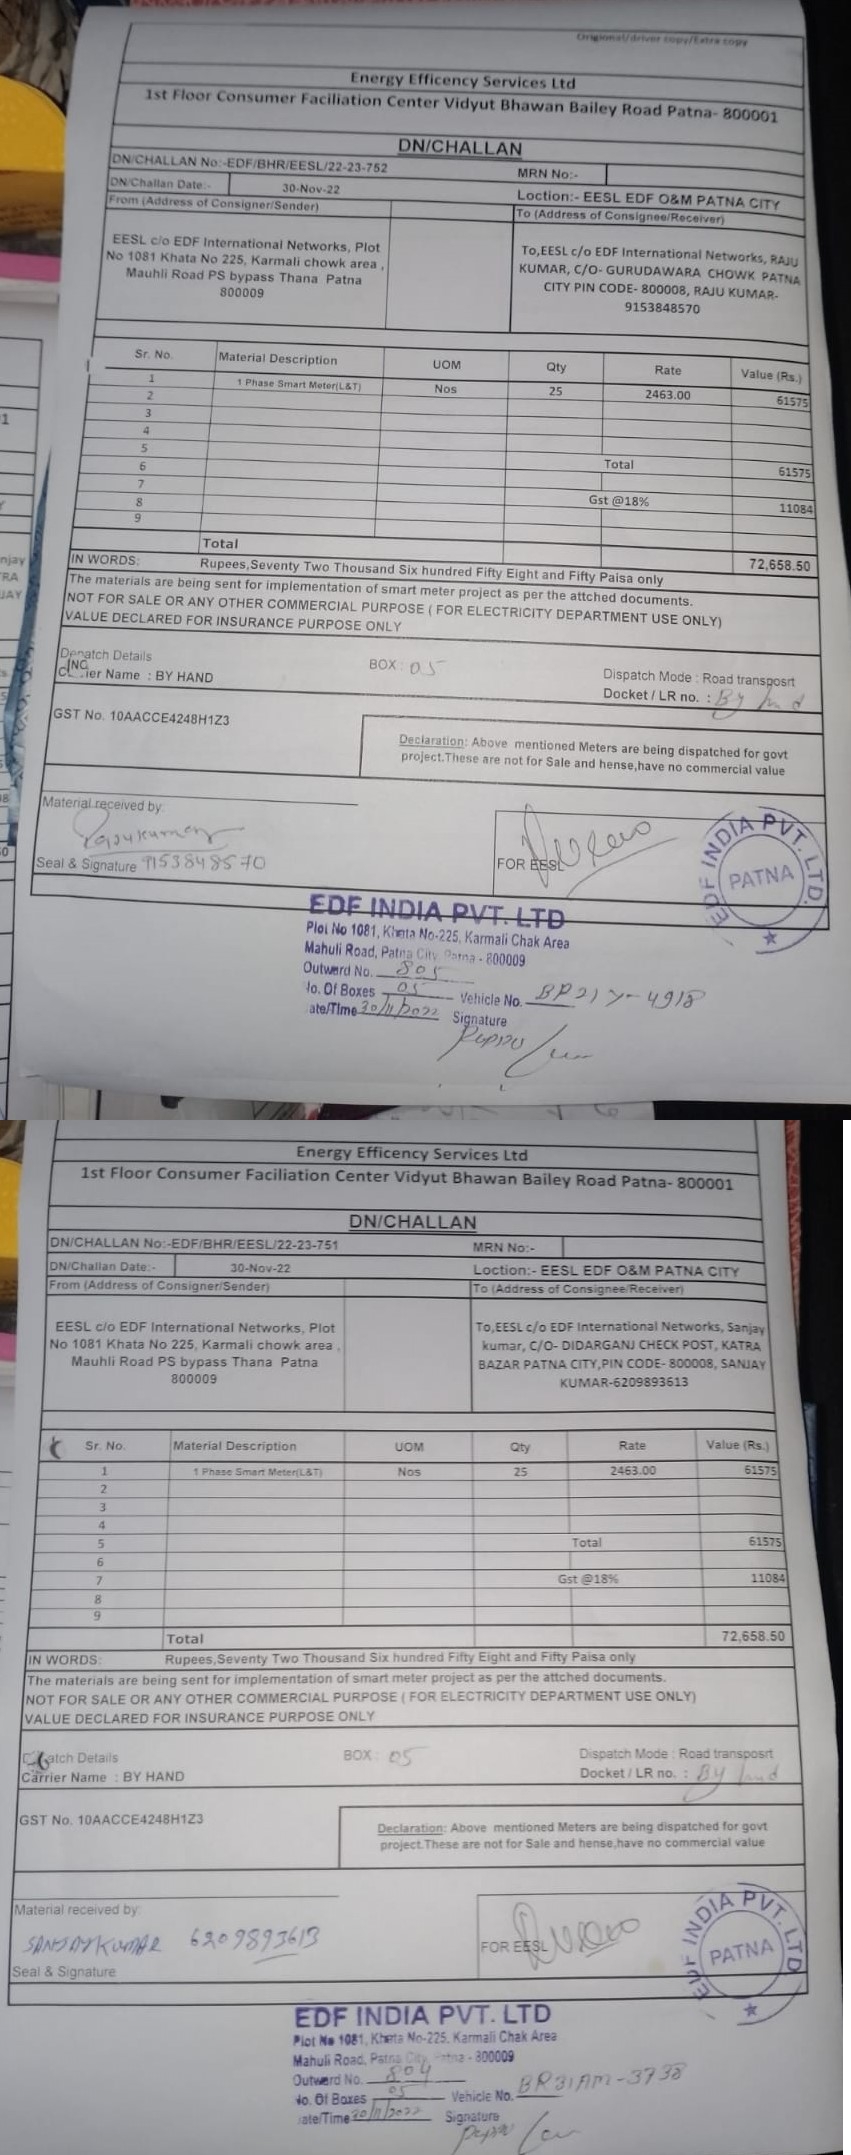 Origional/driver copy/Extra copy
Energy Efficency Services Ltd
1st Floor Consumer Faciliation Center Vidyut Bhawan Bailey Road Patna- 800001
DN/CHALLAN
DN/CHALLAN No:-EDF/BHR/EESL/22-23-752 MRN No:-
DN/Challan Date:- 30-Nov-22 Loction:- EESL EDF O&M PATNA CITY
From (Address of Consigner/Sender) To (Address of Consignee/Receiver)
EESL c/o EDF International Networks, Plot
No 1081 Khata No 225, Karmali chowk area ,
Mauhli Road PS bypass Thana Patna
800009
To,EESL c/o EDF International Networks, RAJU
KUMAR, C/O- GURUDAWARA CHOWK PATNA
CITY PIN CODE- 800008, RAJU KUMAR-
9153848570
Sr. No. Material Description UOM Qty Rate Value (Rs.)
1 1 Phase Smart Meter(L&T) Nos 25 2463.00 61575
2
3
4
5
6 Total 61575
7
8 Gst @18% 11084
9
Total 72,658.50
IN WORDS: Rupees,Seventy Two Thousand Six hundred Fifty Eight and Fifty Paisa only
The materials are being sent for implementation of smart meter project as per the attched documents.
NOT FOR SALE OR ANY OTHER COMMERCIAL PURPOSE ( FOR ELECTRICITY DEPARTMENT USE ONLY)
VALUE DECLARED FOR INSURANCE PURPOSE ONLY
Details BOX : 05 Dispatch Mode : Road transposrt
Name : BY HAND Docket / LR no. : By
GST No. 10AACCE4248H1Z3
Declaration: Above mentioned Meters are being dispatched for govt
project.These are not for Sale and hense,have no commercial value
Material received by:
Rajukumar
Seal & Signature 9153848570
FOR EESL
EDF INDIA PVT. LTD.
PATNA
EDF INDIA PVT. LTD
Plot No 1081, Khata No-225, Karmali Chak Area
Mahuli Road, Patna City Patna - 800009
Outward No. 805
No. Of Boxes 05 Vehicle No.
ate/Time 30/11/2022 Signature
Energy Efficency Services Ltd
1st Floor Consumer Faciliation Center Vidyut Bhawan Bailey Road Patna- 800001
DN/CHALLAN
DN/CHALLAN No:-EDF/BHR/EESL/22-23-751 MRN No:-
DN/Challan Date:- 30-Nov-22 Loction:- EESL EDF O&M PATNA CITY
From (Address of Consigner/Sender) To (Address of Consignee/Receiver)
EESL c/o EDF International Networks, Plot
No 1081 Khata No 225, Karmali chowk area ,
Mauhli Road PS bypass Thana Patna
800009
To,EESL c/o EDF International Networks, Sanjay
kumar, C/O- DIDARGANJ CHECK POST, KATRA
BAZAR PATNA CITY,PIN CODE- 800008, SANJAY
KUMAR-6209893613
Sr. No. Material Description UOM Qty Rate Value (Rs.)
1 1 Phase Smart Meter(L&T) Nos 25 2463.00 61575
2
3
4
5 Total 61575
6
7 Gst @18% 11084
8
9
Total 72,658.50
IN WORDS: Rupees,Seventy Two Thousand Six hundred Fifty Eight and Fifty Paisa only
The materials are being sent for implementation of smart meter project as per the attched documents.
NOT FOR SALE OR ANY OTHER COMMERCIAL PURPOSE ( FOR ELECTRICITY DEPARTMENT USE ONLY)
VALUE DECLARED FOR INSURANCE PURPOSE ONLY
Details BOX : 05 Dispatch Mode : Road transposrt
Carrier Name : BY HAND Docket / LR no. : By
GST No. 10AACCE4248H1Z3
Declaration: Above mentioned Meters are being dispatched for govt
project.These are not for Sale and hense,have no commercial value
Material received by:
SANJAY KUMAR 6209893613
Seal & Signature
FOR EESL
EDF INDIA PVT. LTD
PATNA
EDF INDIA PVT. LTD
Plot No 1081, Khata No-225, Karmali Chak Area
Mahuli Road, Patna City Patna - 800009
Outward No. 804
No. Of Boxes 05 Vehicle No. BR31AM-3738
ate/Time 30/11/2022 Signature